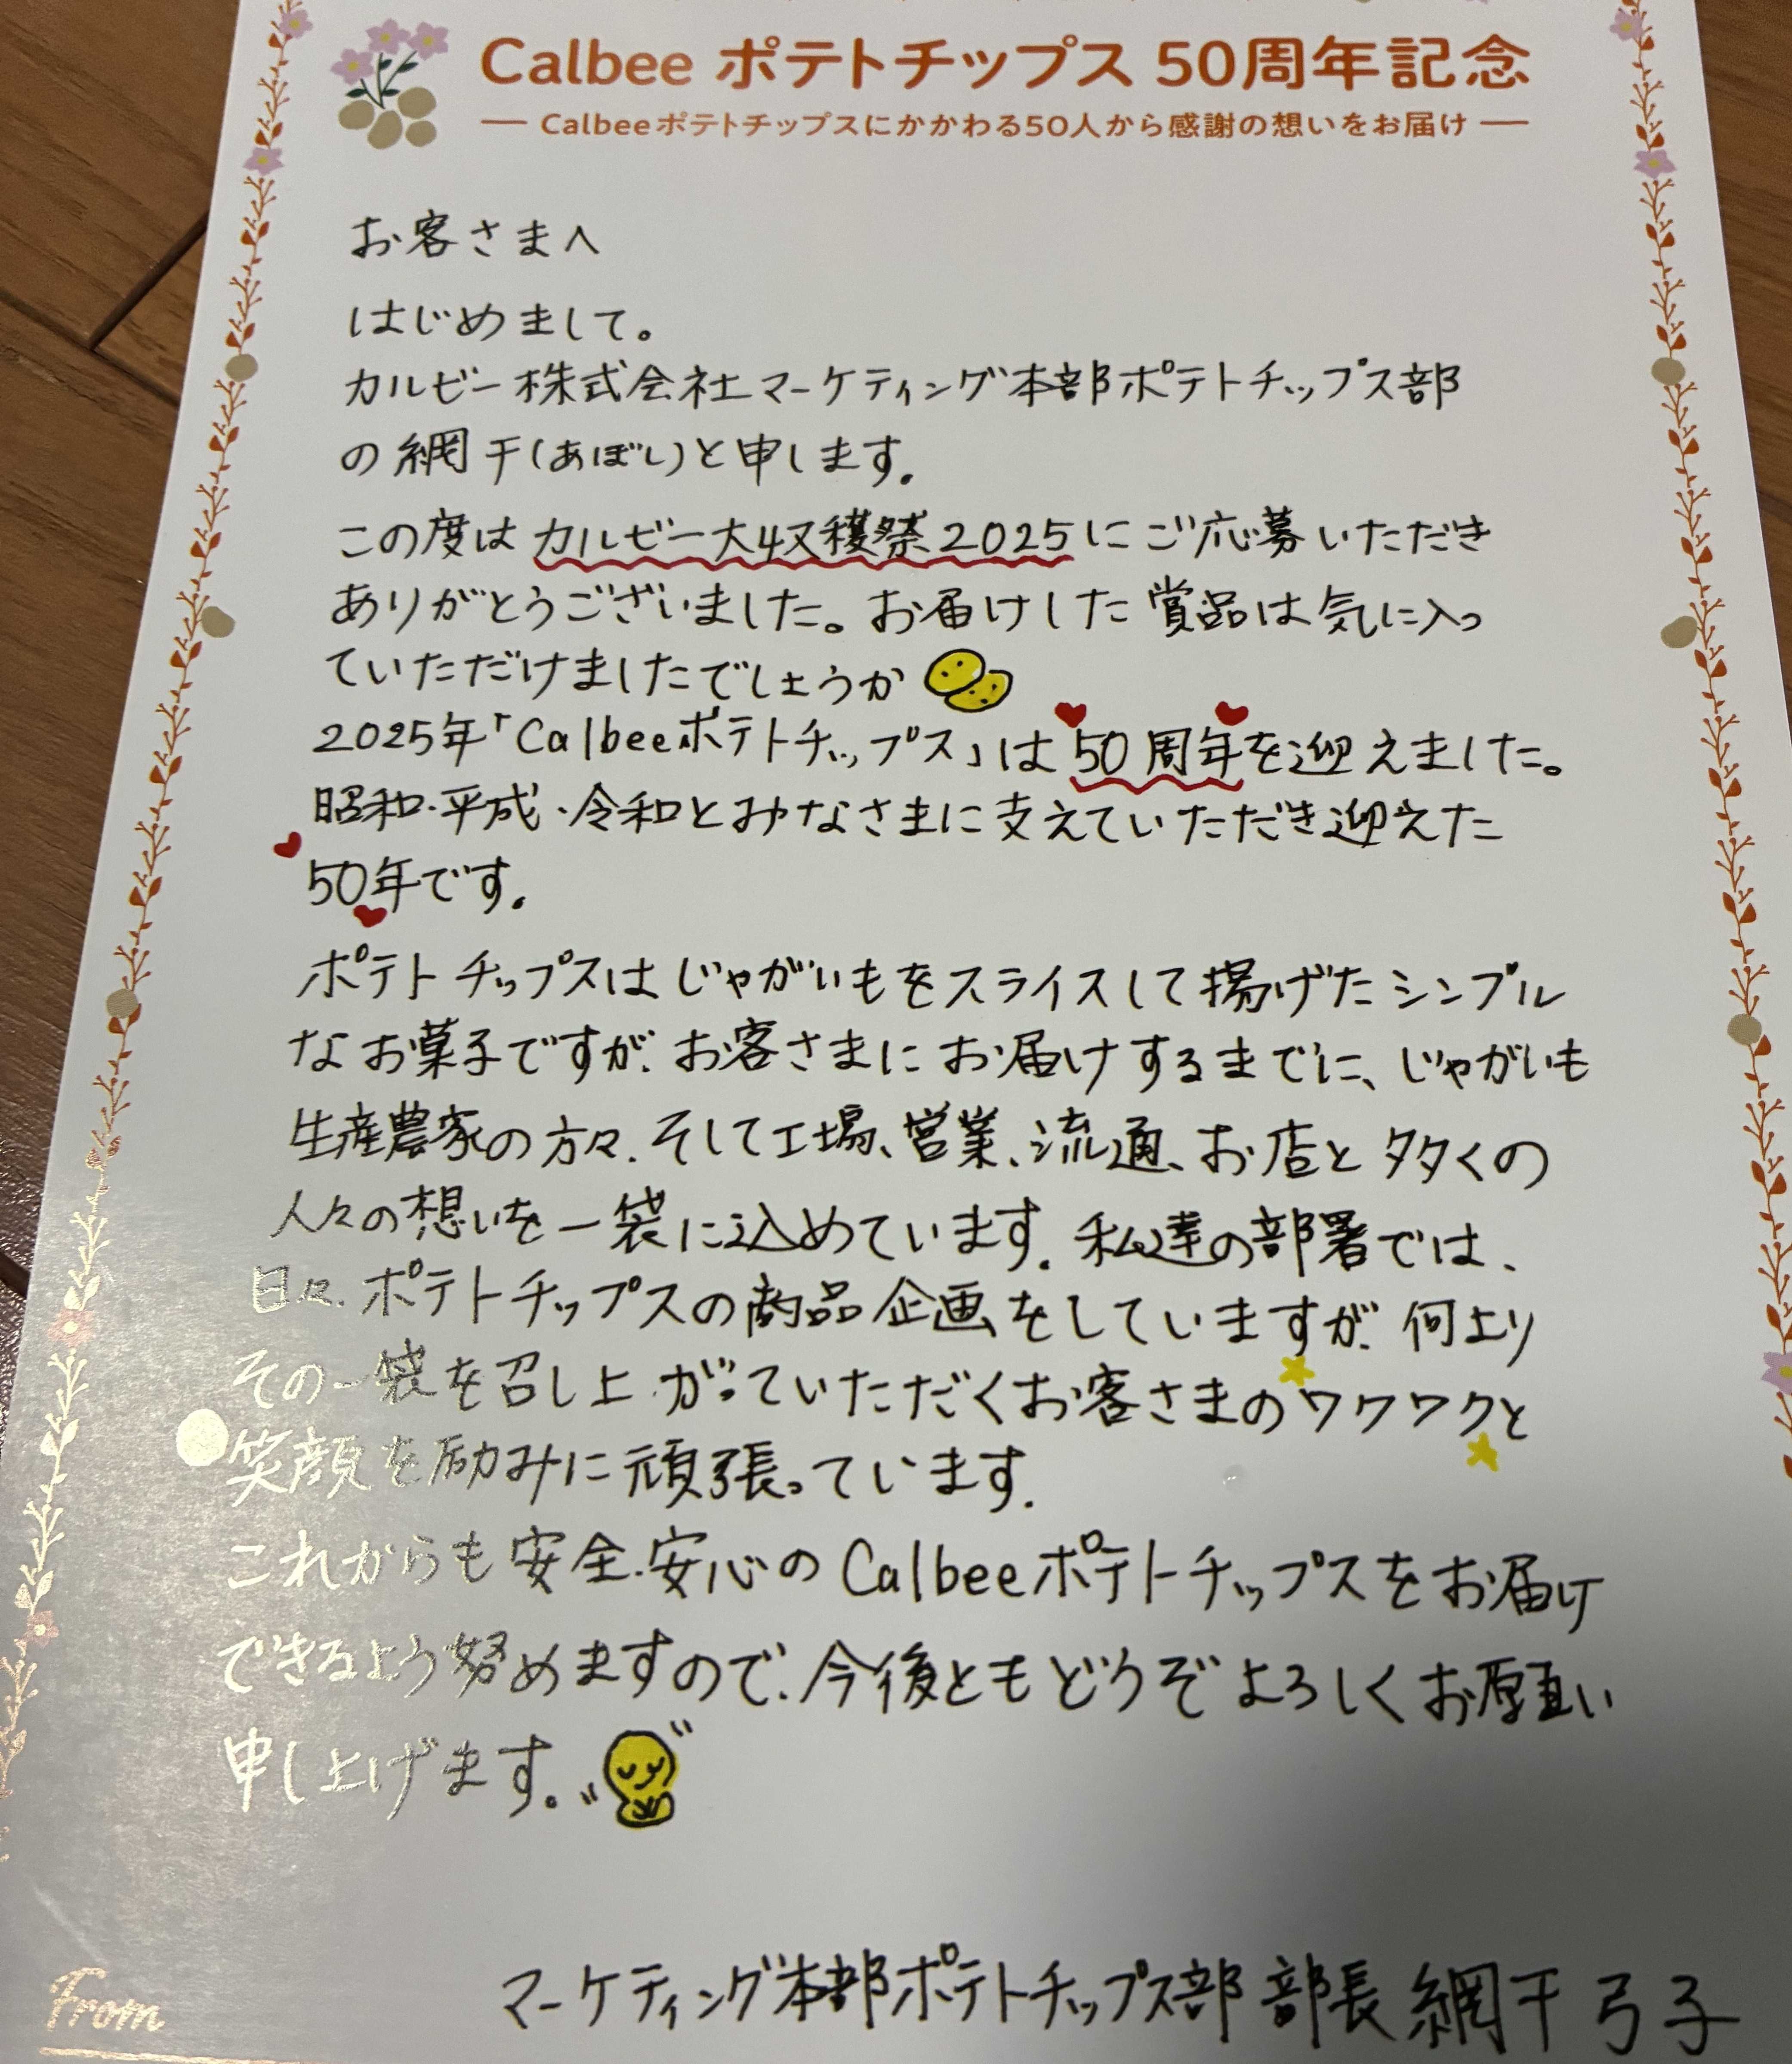 Calbee ポテトチップス 50周年記念
― Calbeeポテトチップスにかかわる50人から感謝の想いをお届け ―
お客さまへ
はじめまして。
カルビー株式会社マーケティング本部ポテトチップス部
の網干(あぼし)と申します。
この度はカルビー大収穫祭2025にご応募いただき
ありがとうございました。お届けした賞品は気に入っ
ていただけましたでしょうか
2025年「Calbeeポテトチップス」は50周年を迎えました。
昭和・平成・令和とみなさまに支えていただき迎えた
50年です。
ポテトチップスはじゃがいもをスライスして揚げたシンプル
なお菓子ですが、お客さまにお届けするまでに、じゃがいも
生産農家の方々、そして工場、営業、流通、お店と多くの
人々の想いを一袋に込めています。私達の部署では、
日々、ポテトチップスの商品企画をしていますが、何より
その一袋を召し上がっていただくお客さまのワクワクと
笑顔を励みに頑張っています。
これからも安全・安心のCalbeeポテトチップスをお届け
できるよう努めますので、今後ともどうぞよろしくお願い
申し上げます。
From
マーケティング本部ポテトチップス部 部長 網干 弓子